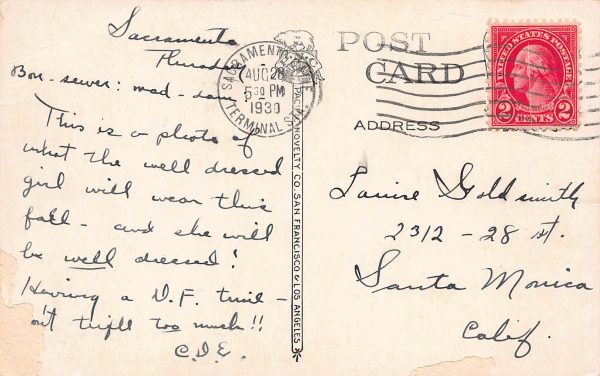 Sacramento
Thursday
Bon-sewer: mad-dam
This is a photo of
what the well dressed
girl will wear this
fall - and she will
be well dressed!
Having a D.F. time -
a trifle too much!!
C.D.E.
SACRAMENTO, CALIF.
AUG 28
5 30 PM
1930
TERMINAL STA.
PACIFIC NOVELTY CO. SAN FRANCISCO & LOS ANGELES
POST
CARD
ADDRESS
UNITED STATES POSTAGE
2 CENTS 2
Louise Goldsmith
2312 - 28 st.
Santa Monica
Calif.